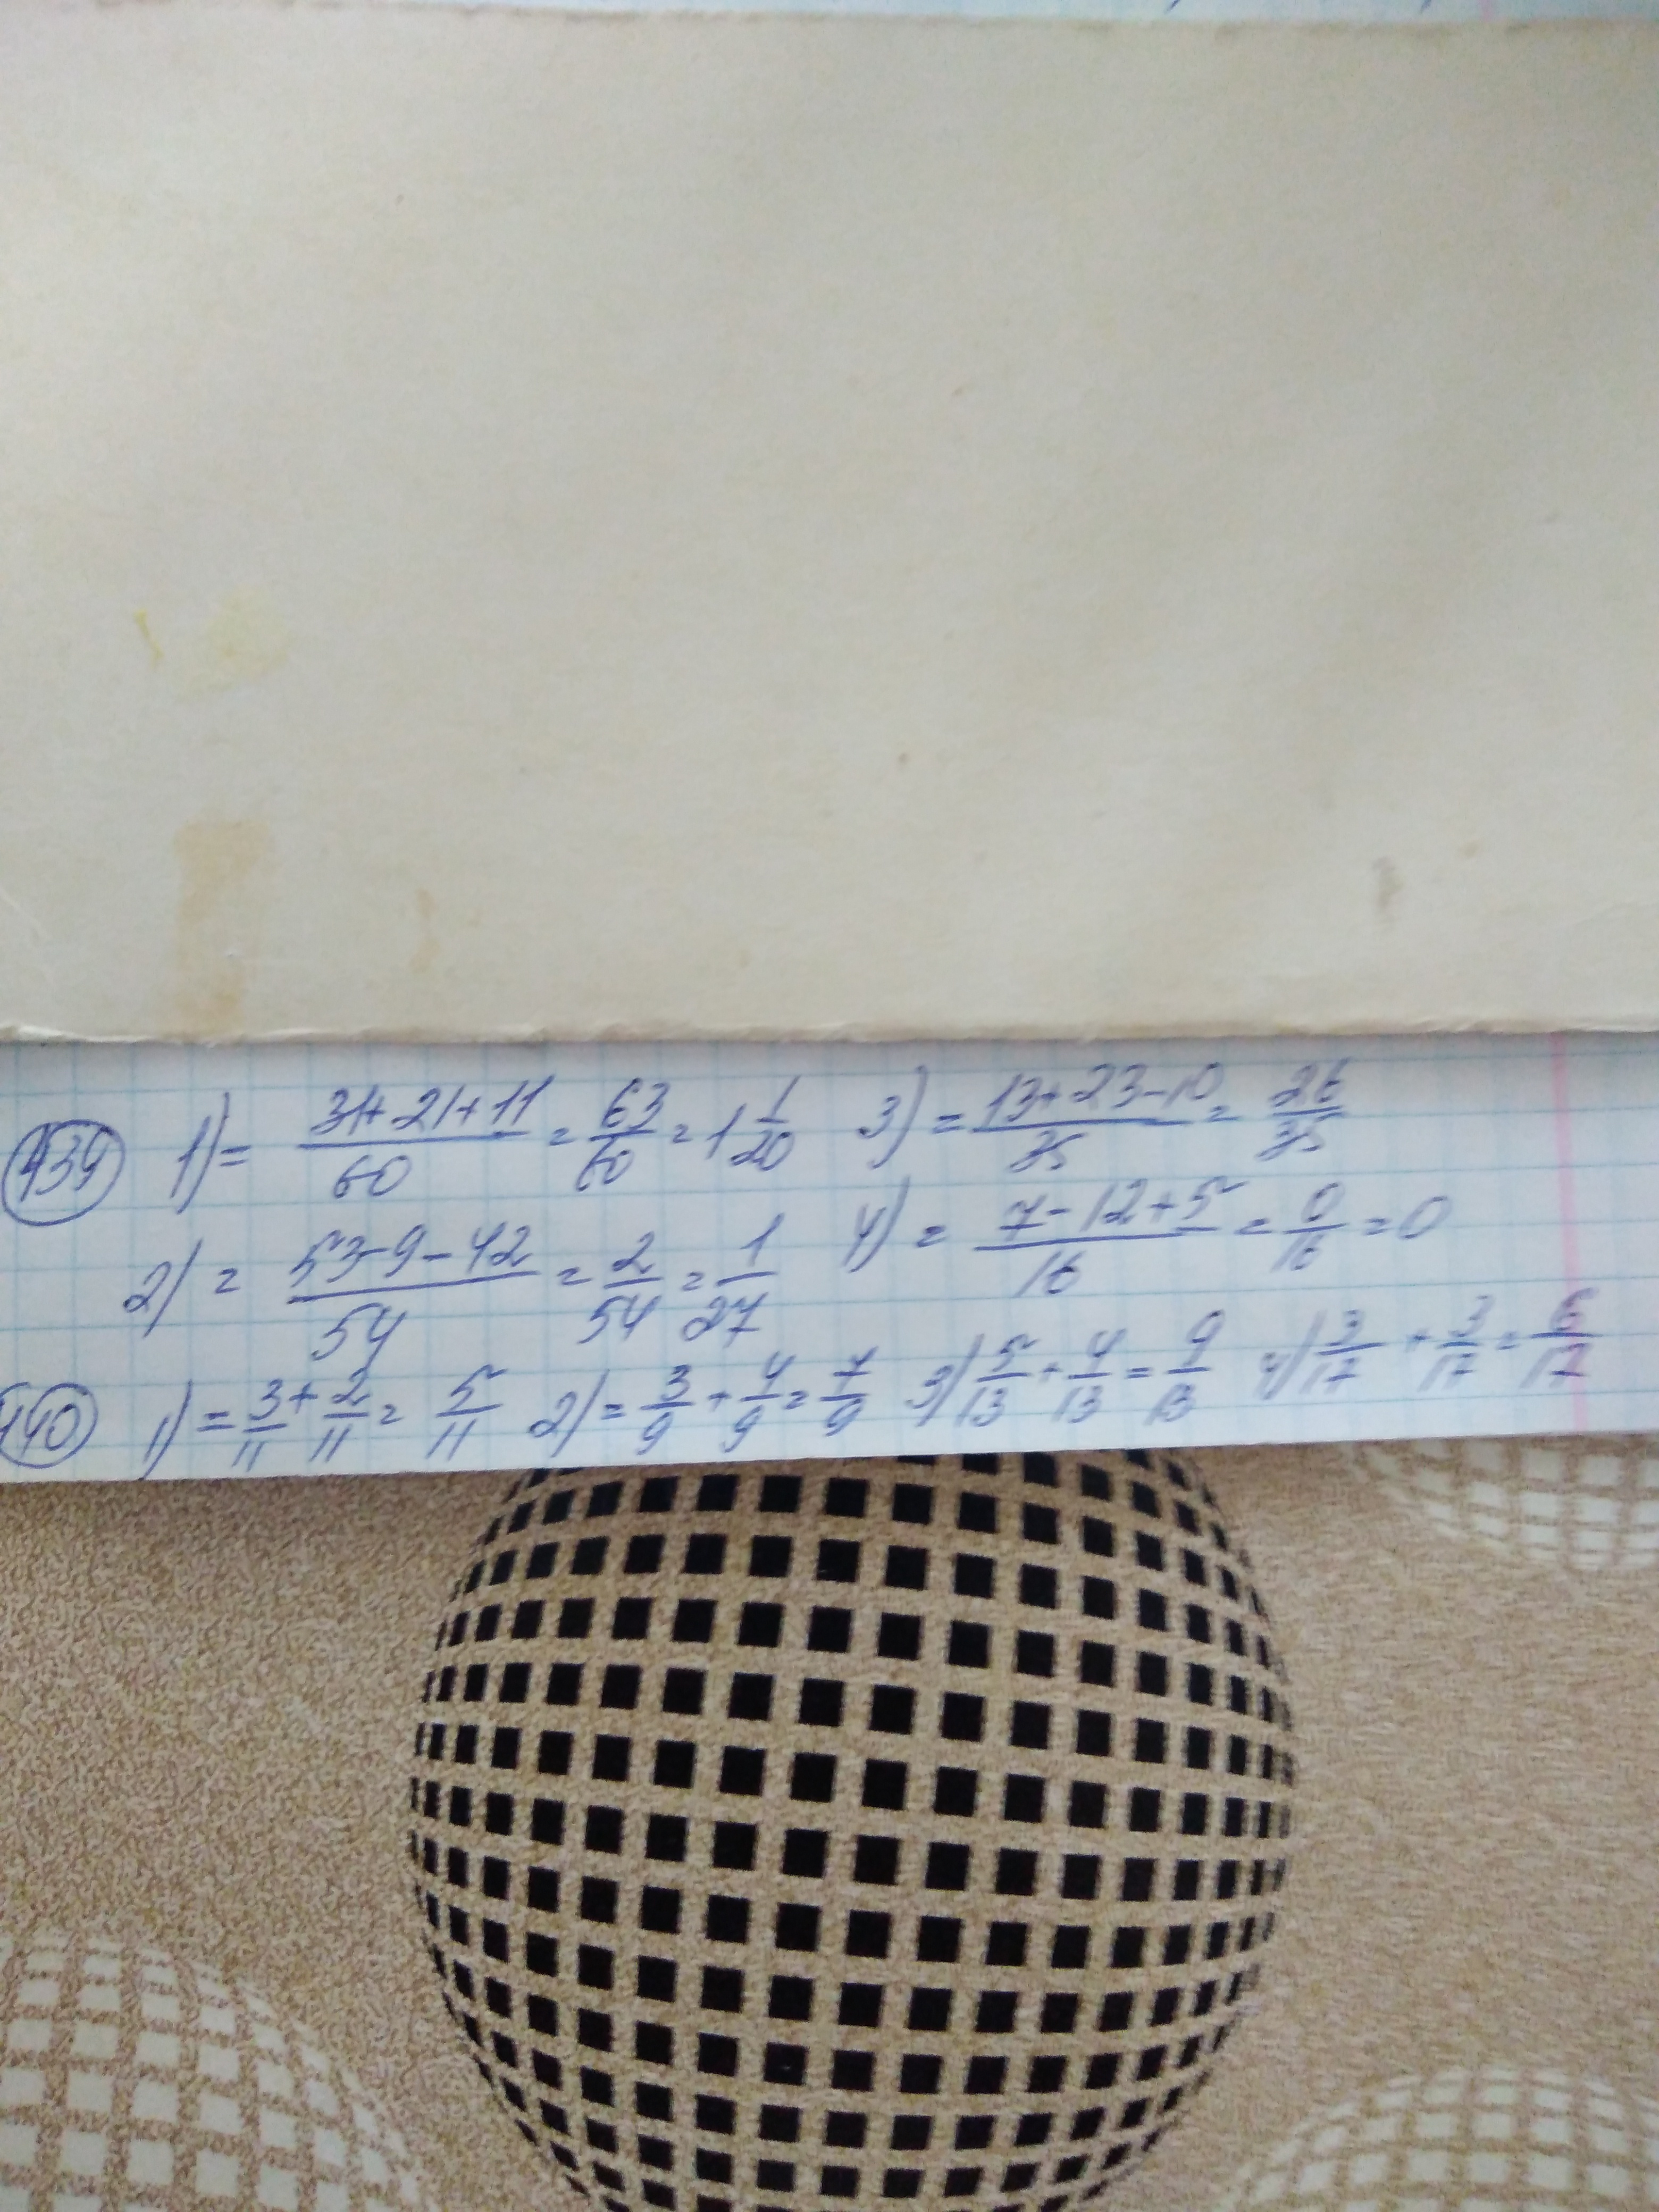 439 1) = (31+21+11)/60 = 63/60 = 1 1/20 3) = (13+23-10)/35 = 26/35
2) = (53-9-42)/54 = 2/54 = 1/27 4) = (7-12+5)/16 = 0/16 = 0
440 1) = 3/11 + 2/11 = 5/11 2) = 3/9 + 4/9 = 7/9 3) 5/13 + 4/13 = 9/13 4) 3/17 + 3/17 = 6/17